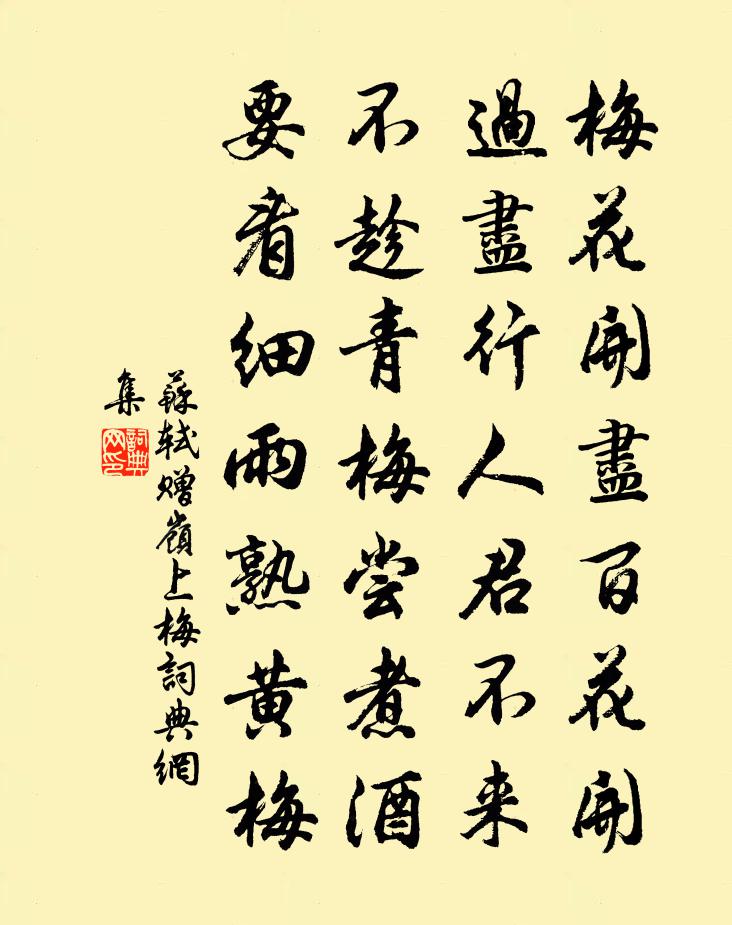 梅花開盡百花開
過盡行人君不来
不趁青梅尝煮酒
要看细雨熟黄梅
蘇轼赠嶺上梅詞典網
集
詞典
网印